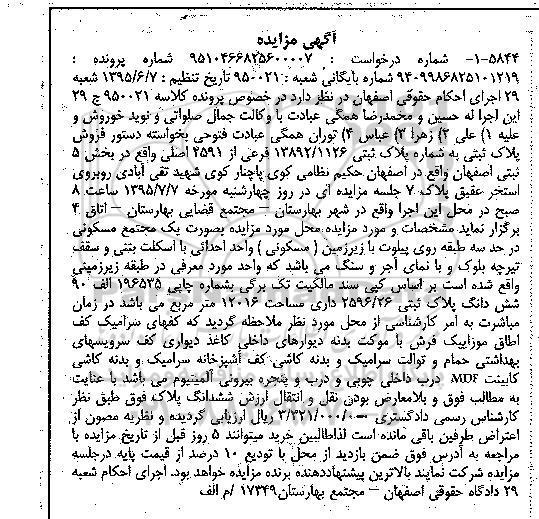 آگهی مزایده
۱-۵۸۴۴- شماره درخواست : ۹۵۱۰۴۶۶۸۲۵۶۰۰۰۰۷ شماره پرونده :
۹۴۰۹۹۸۶۸۲۵۱۰۱۲۱۹ شماره بایگانی شعبه : ۹۵۰۰۲۱ تاریخ تنظیم : ۱۳۹۵/۶/۷ شعبه
۲۹ اجرای احکام حقوقی اصفهان در نظر دارد در خصوص پرونده کلاسه ۹۵۰۰۲۱ ج ۲۹
این اجرا له حسین و محمدرضا همگی عبادت با وکالت جمال صلواتی و نوید خوروش و
علیه ۱) علی ۲) زهرا ۳) عباس ۴) توران همگی عبادت فتوحی بخواسته دستور فروش
پلاک ثبتی به شماره پلاک ثبتی ۱۳۸۹۲/۱۱۲۶ فرعی از ۴۵۹۱ اصلی واقع در بخش ۵
ثبتی اصفهان واقع در اصفهان حکیم نظامی کوی پاچنار کوی شهید تقی آبادی روبروی
استخر عقیق پلاک ۷ جلسه مزایده ای در روز چهارشنبه مورخه ۱۳۹۵/۷/۷ ساعت ۸
صبح در محل این اجرا واقع در شهر بهارستان – مجتمع قضایی بهارستان – اتاق ۴
برگزار نماید مشخصات و مورد مزایده محل مورد مزایده بصورت یک مجتمع مسکونی
در حد سه طبقه روی پیلوت با زیرزمین ( مسکونی ) واحد احداثی با اسکلت بتنی و سقف
تیرچه بلوک و با نمای آجر و سنگ می باشد که واحد مورد معرفی در طبقه زیرزمینی
واقع شده است بر اساس کپی سند مالکیت تک برگی بشماره چاپی ۱۹۶۵۳۵ الف ۹۰
شش دانگ پلاک ثبتی ۲۵۹۶/۲۶ داری مساحت ۱۲۰۱۶ متر مربع می باشد در زمان
مباشرت به امر کارشناسی از محل مورد نظر ملاحظه گردید که کفهای سرامیک کف
اطاق موزاییک فرش با موکت بدنه دیوارهای داخلی کاغذ دیواری کف سرویسهای
بهداشتی حمام و توالت سرامیک و بدنه کاشی کف آشپزخانه سرامیک و بدنه کاشی
کابینت MDF درب داخلی چوبی و درب و پنجره بیرونی آلمینیوم می باشد با عنایت
به مطالب فوق و بلامعارض بودن نقل و انتقال ارزش ششدانگ پلاک فوق طبق نظر
کارشناس رسمی دادگستری ۳/۳۲۱/۰۰۰/۰۰۰ ریال ارزیابی گردیده و نظریه مصون از
اعتراض طرفین باقی مانده است لذا طالبین خرید میتوانند ۵ روز قبل از تاریخ مزایده با
مراجعه به آدرس فوق ضمن بازدید از محل با تودیع ۱۰ درصد از قیمت پایه درجلسه
مزایده شرکت نمایند بالاترین پیشنهاددهنده برنده مزایده خواهد بود. اجرای احکام شعبه
۲۹ دادگاه حقوقی اصفهان – مجتمع بهارستان ۱۷۳۴۹ /م الف